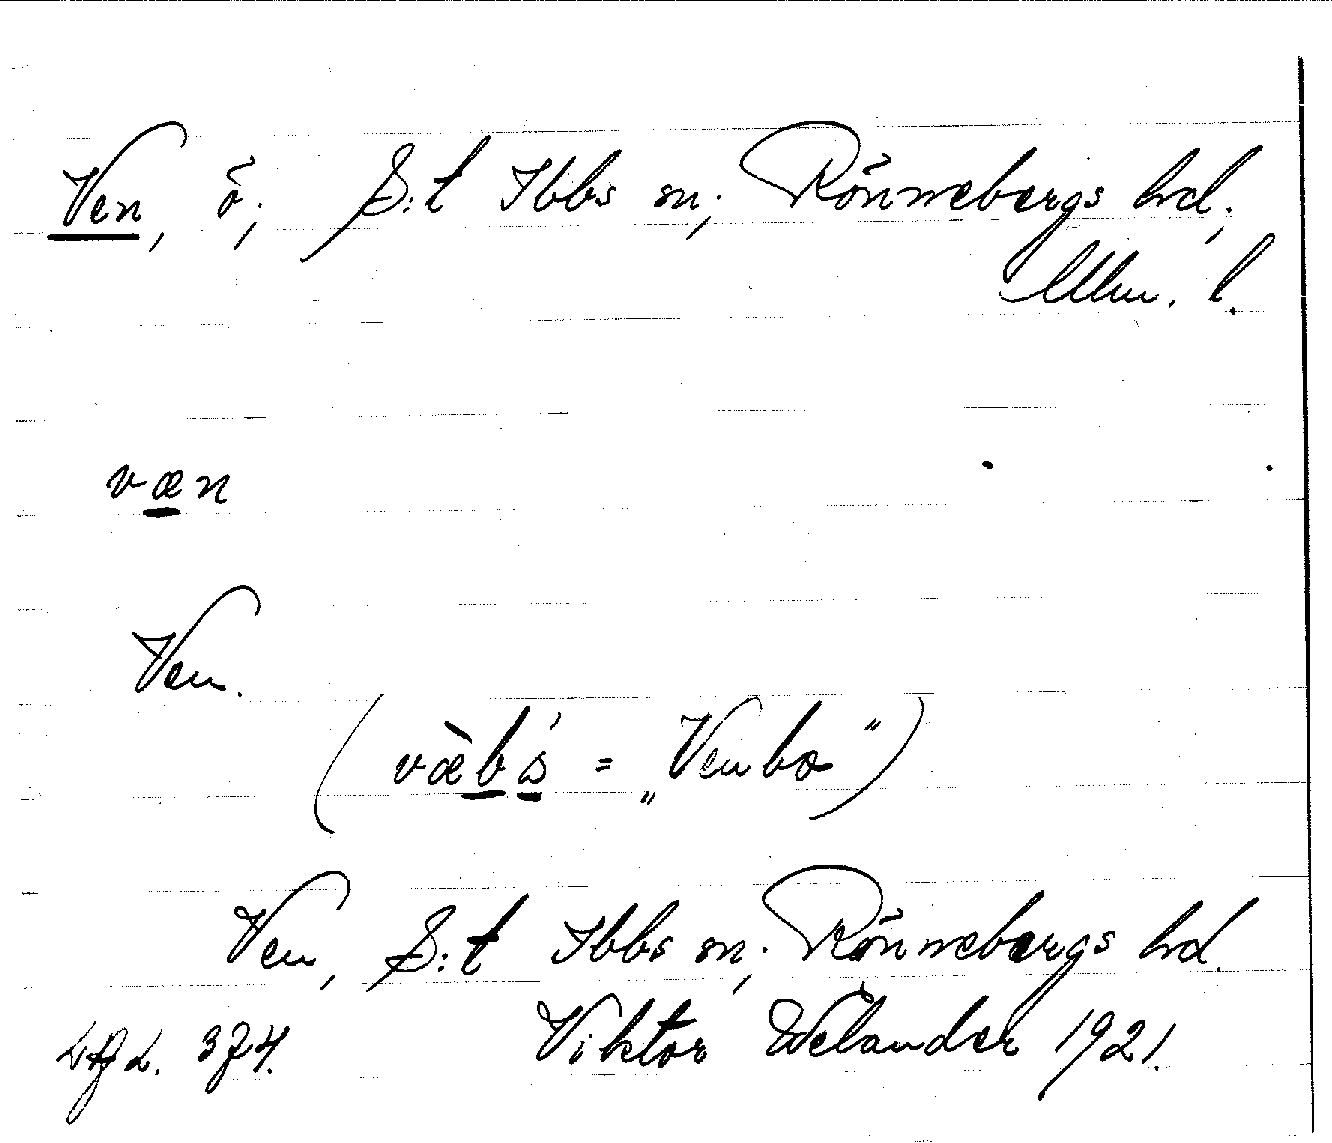 Ven, ö, S:t Ibbs sn, Rönnebergs hd,
Mlm. l.
væn
Ven.
( = „Venbo”)
Ven, S:t Ibbs sn, Rönnebergs hd.
374. Viktor Welander 1921.